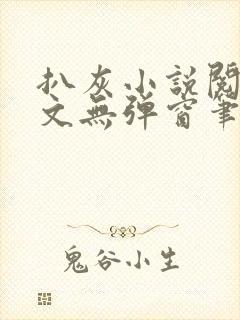 扒灰小說閱
文無彈窗筆
鬼谷小生